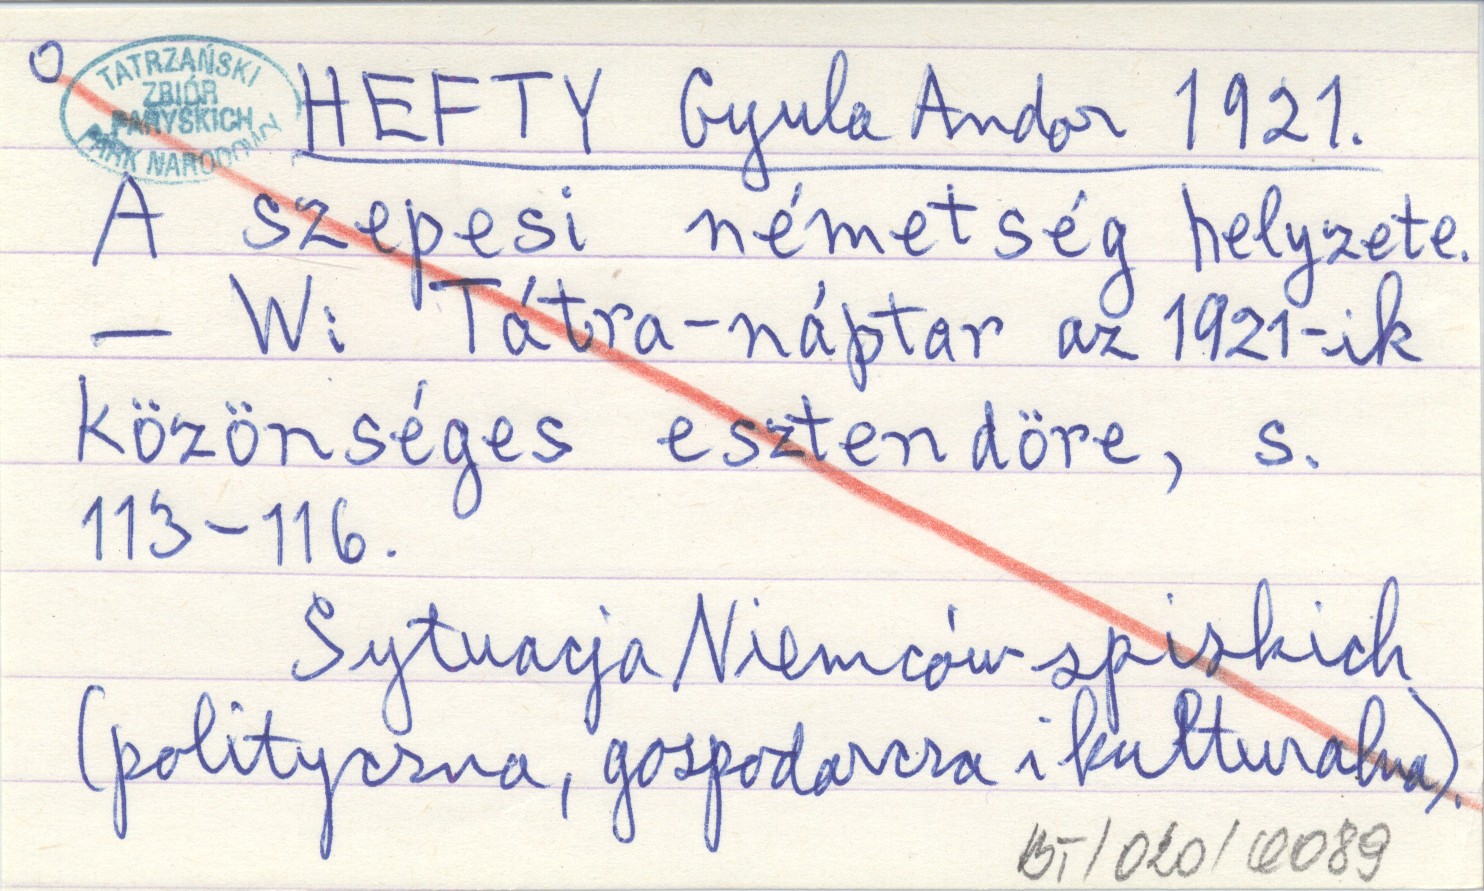 O
TATRZAŃSKI
ZBIÓR
PARYSKICH
PARK NARODOWY
HEFTY Gyula Andor 1921.
A szepesi németség helyzete.
— Wi Tátra-náptar az 1921-ik
közönséges esztendöre, s.
113-116.
Sytuacja Niemców spiskich
(polityczna, gospodarcza i kulturalna).
BT/020/